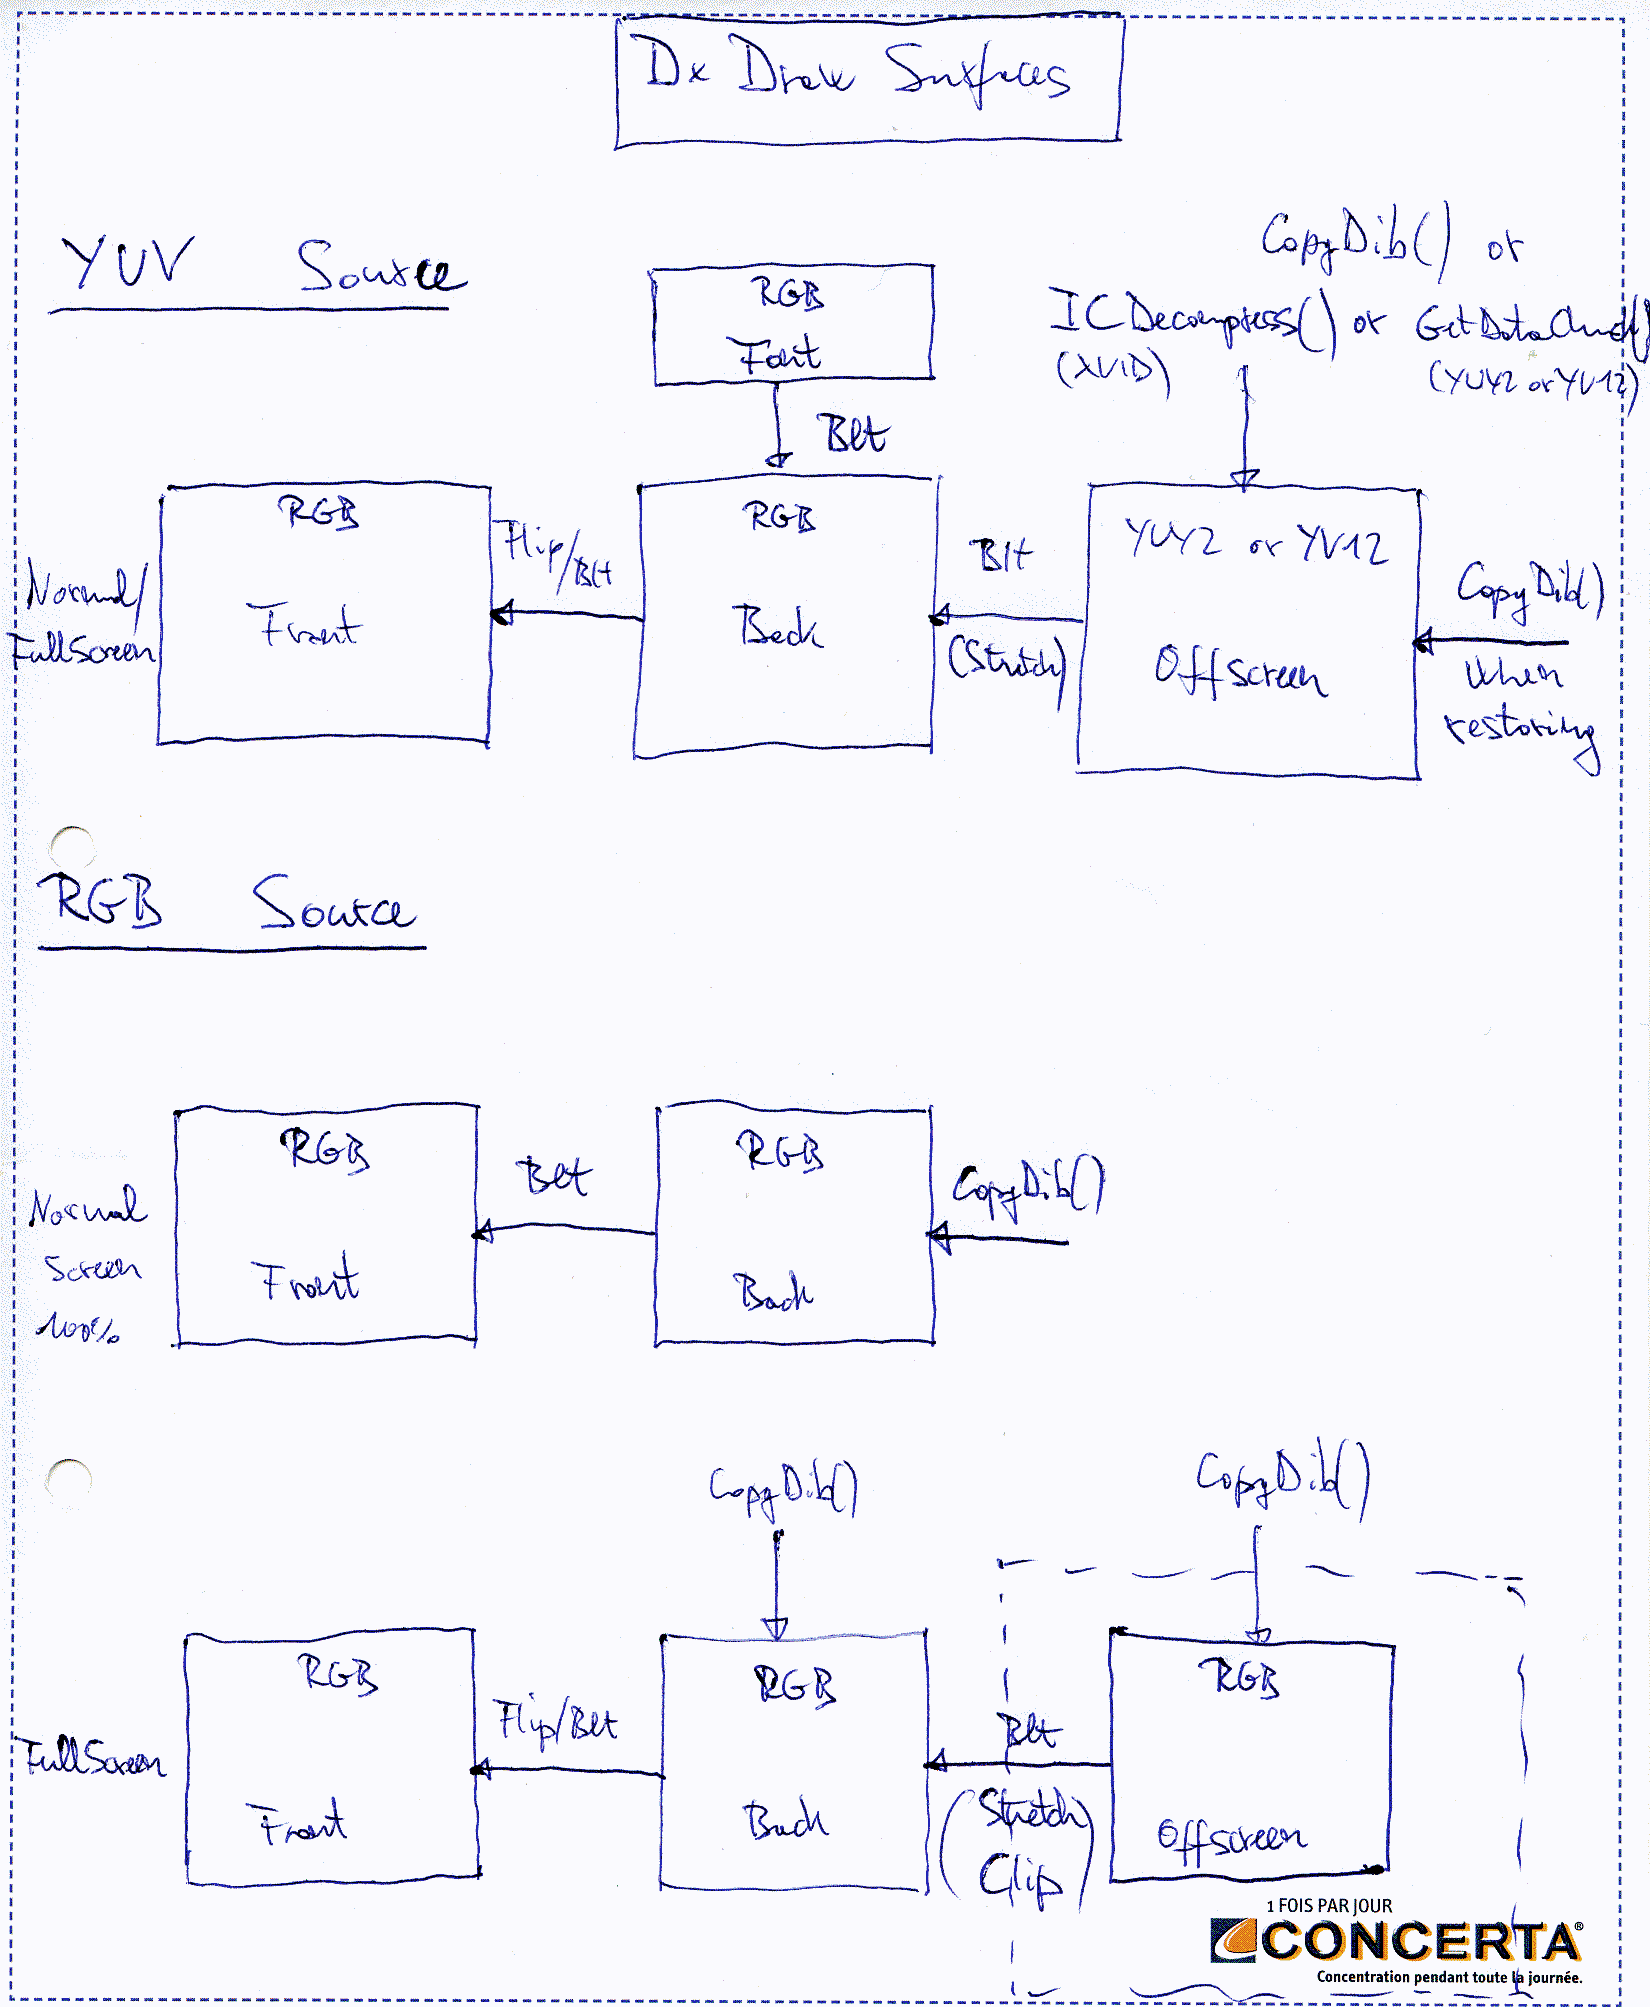 Dx Draw Surfaces
YUV Source
CopyDib() or
ICDecompress() or GetDataChunk()
(XVID)
(YUY2 or YV12)
RGB
Font
Blt
RGB
Front
Normal/
FullScreen
Flip/Blt
RGB
Back
Blt
(Stretch)
YUY2 or YV12
Offscreen
CopyDib()
when
restoring
RGB Source
Normal
Screen
100%
RGB
Front
Blt
RGB
Back
CopyDib()
CopyDib()
CopyDib()
FullScreen
RGB
Front
Flip/Blt
RGB
Back
Blt
(Stretch
Clip)
RGB
Offscreen
1 FOIS PAR JOUR
CONCERTA®
Concentration pendant toute la journée.